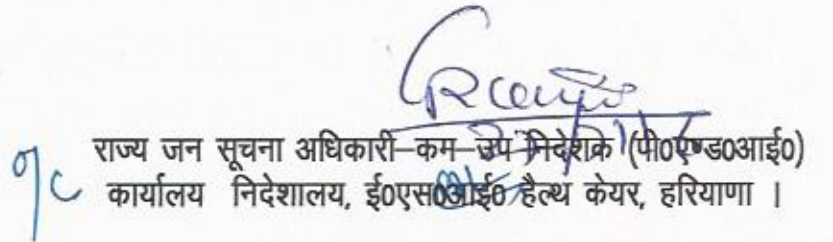 राज्य जन सूचना अधिकारी-कम-उप निदेशक (पी०एण्ड०आई०)
कार्यालय निदेशालय, ई०एस०आई० हैल्थ केयर, हरियाणा ।